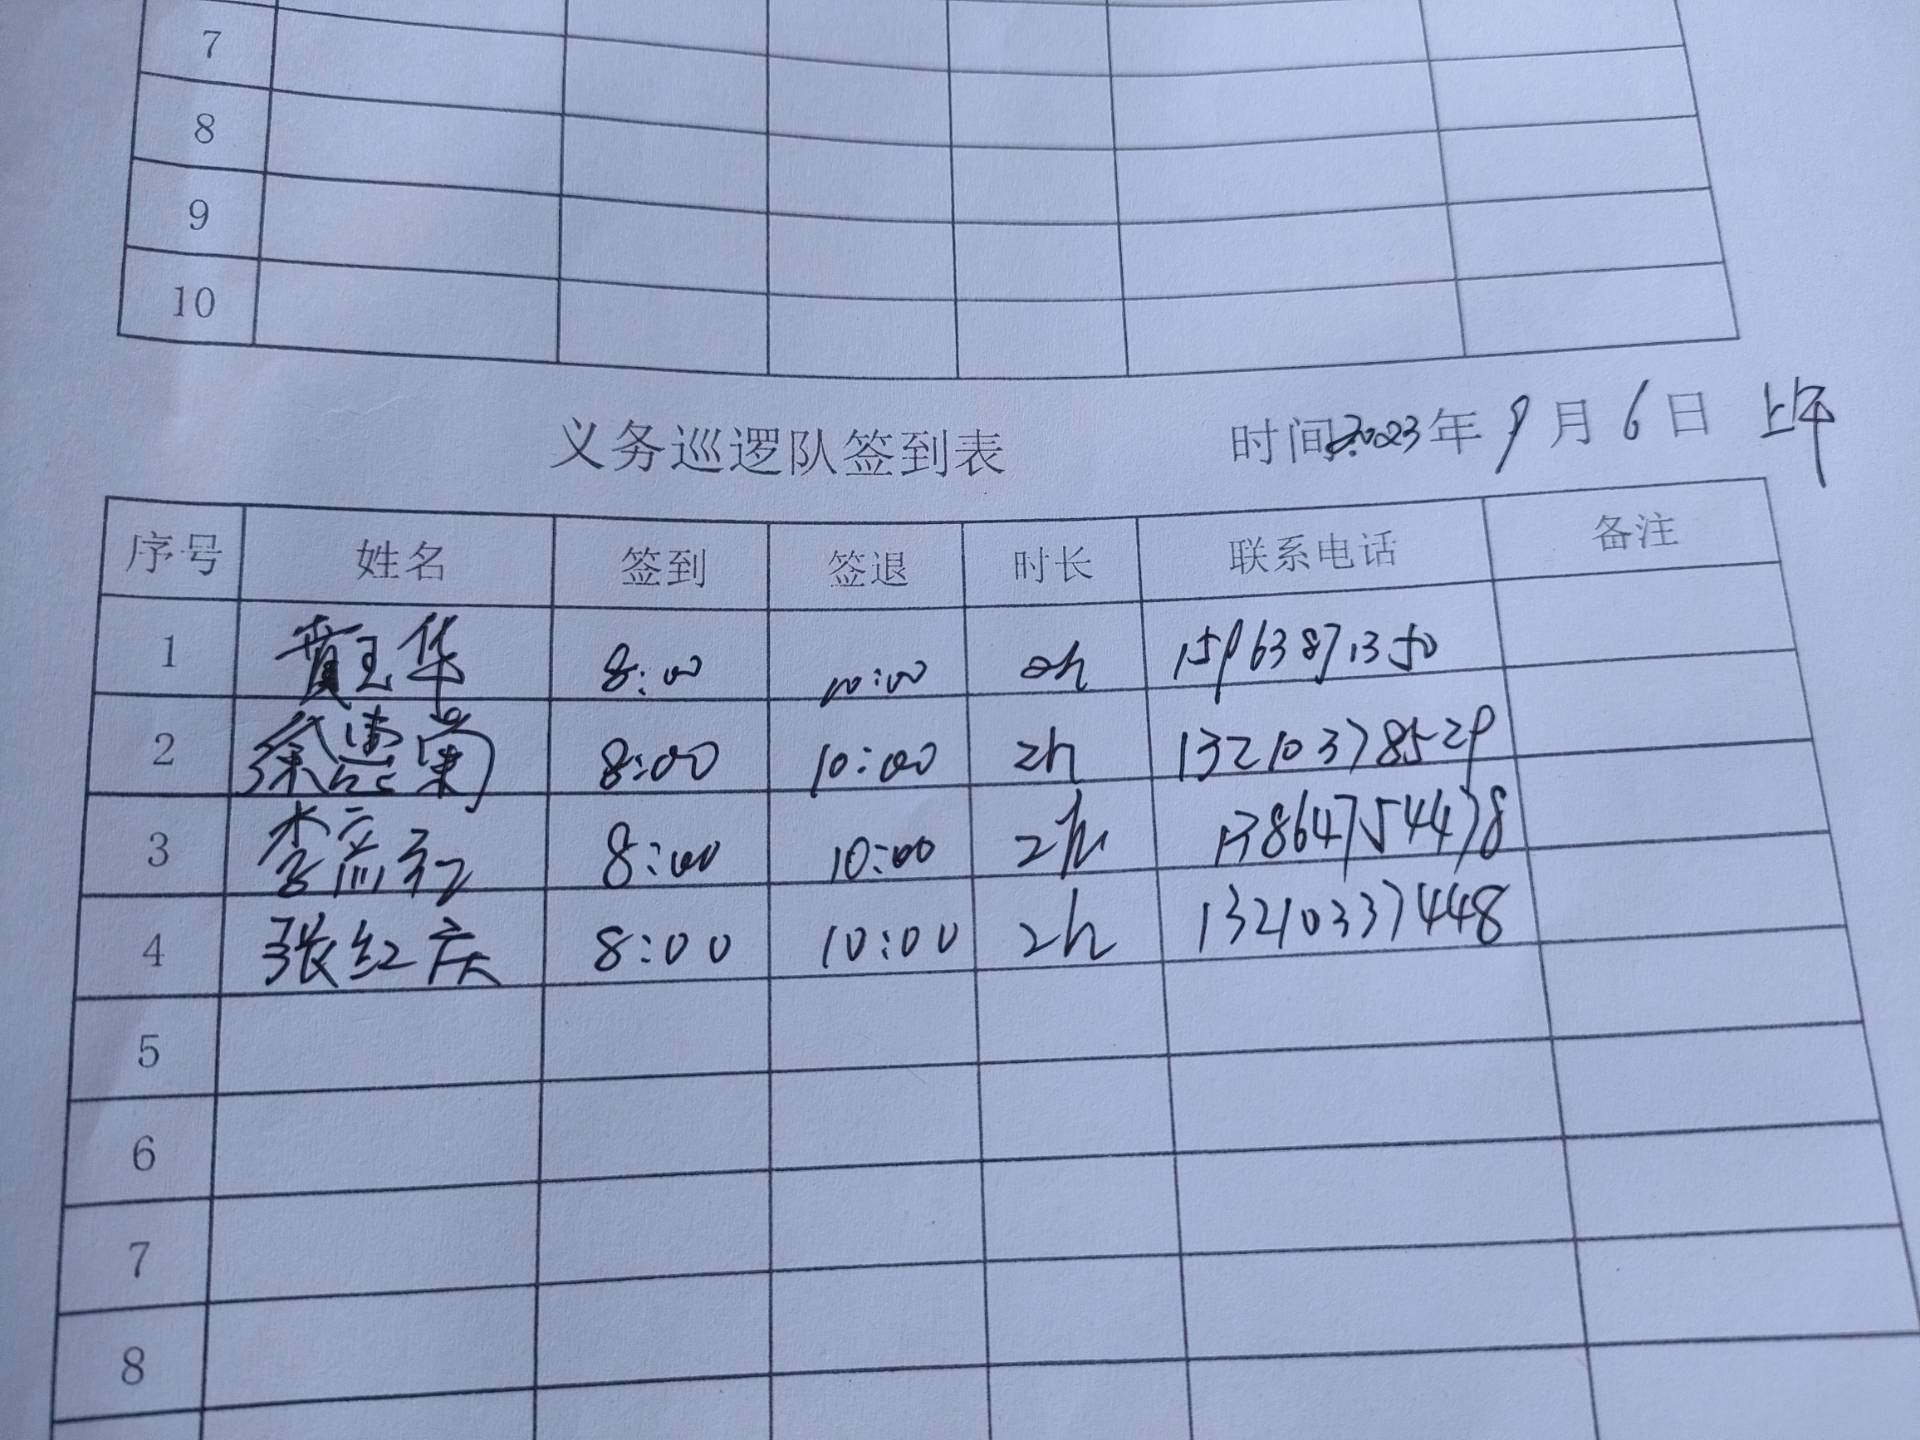 7
8
9
10
义务巡逻队签到表 时间:2023年9月6日 上午
序号 姓名 签到 签退 时长 联系电话 备注
1 黄玉华 8:00 10:00 2h 15963871350
2 徐惠菊 8:00 10:00 2h 13210378529
3 李应红 8:00 10:00 2h 13864754478
4 张红庆 8:00 10:00 2h 13210337448
5
6
7
8